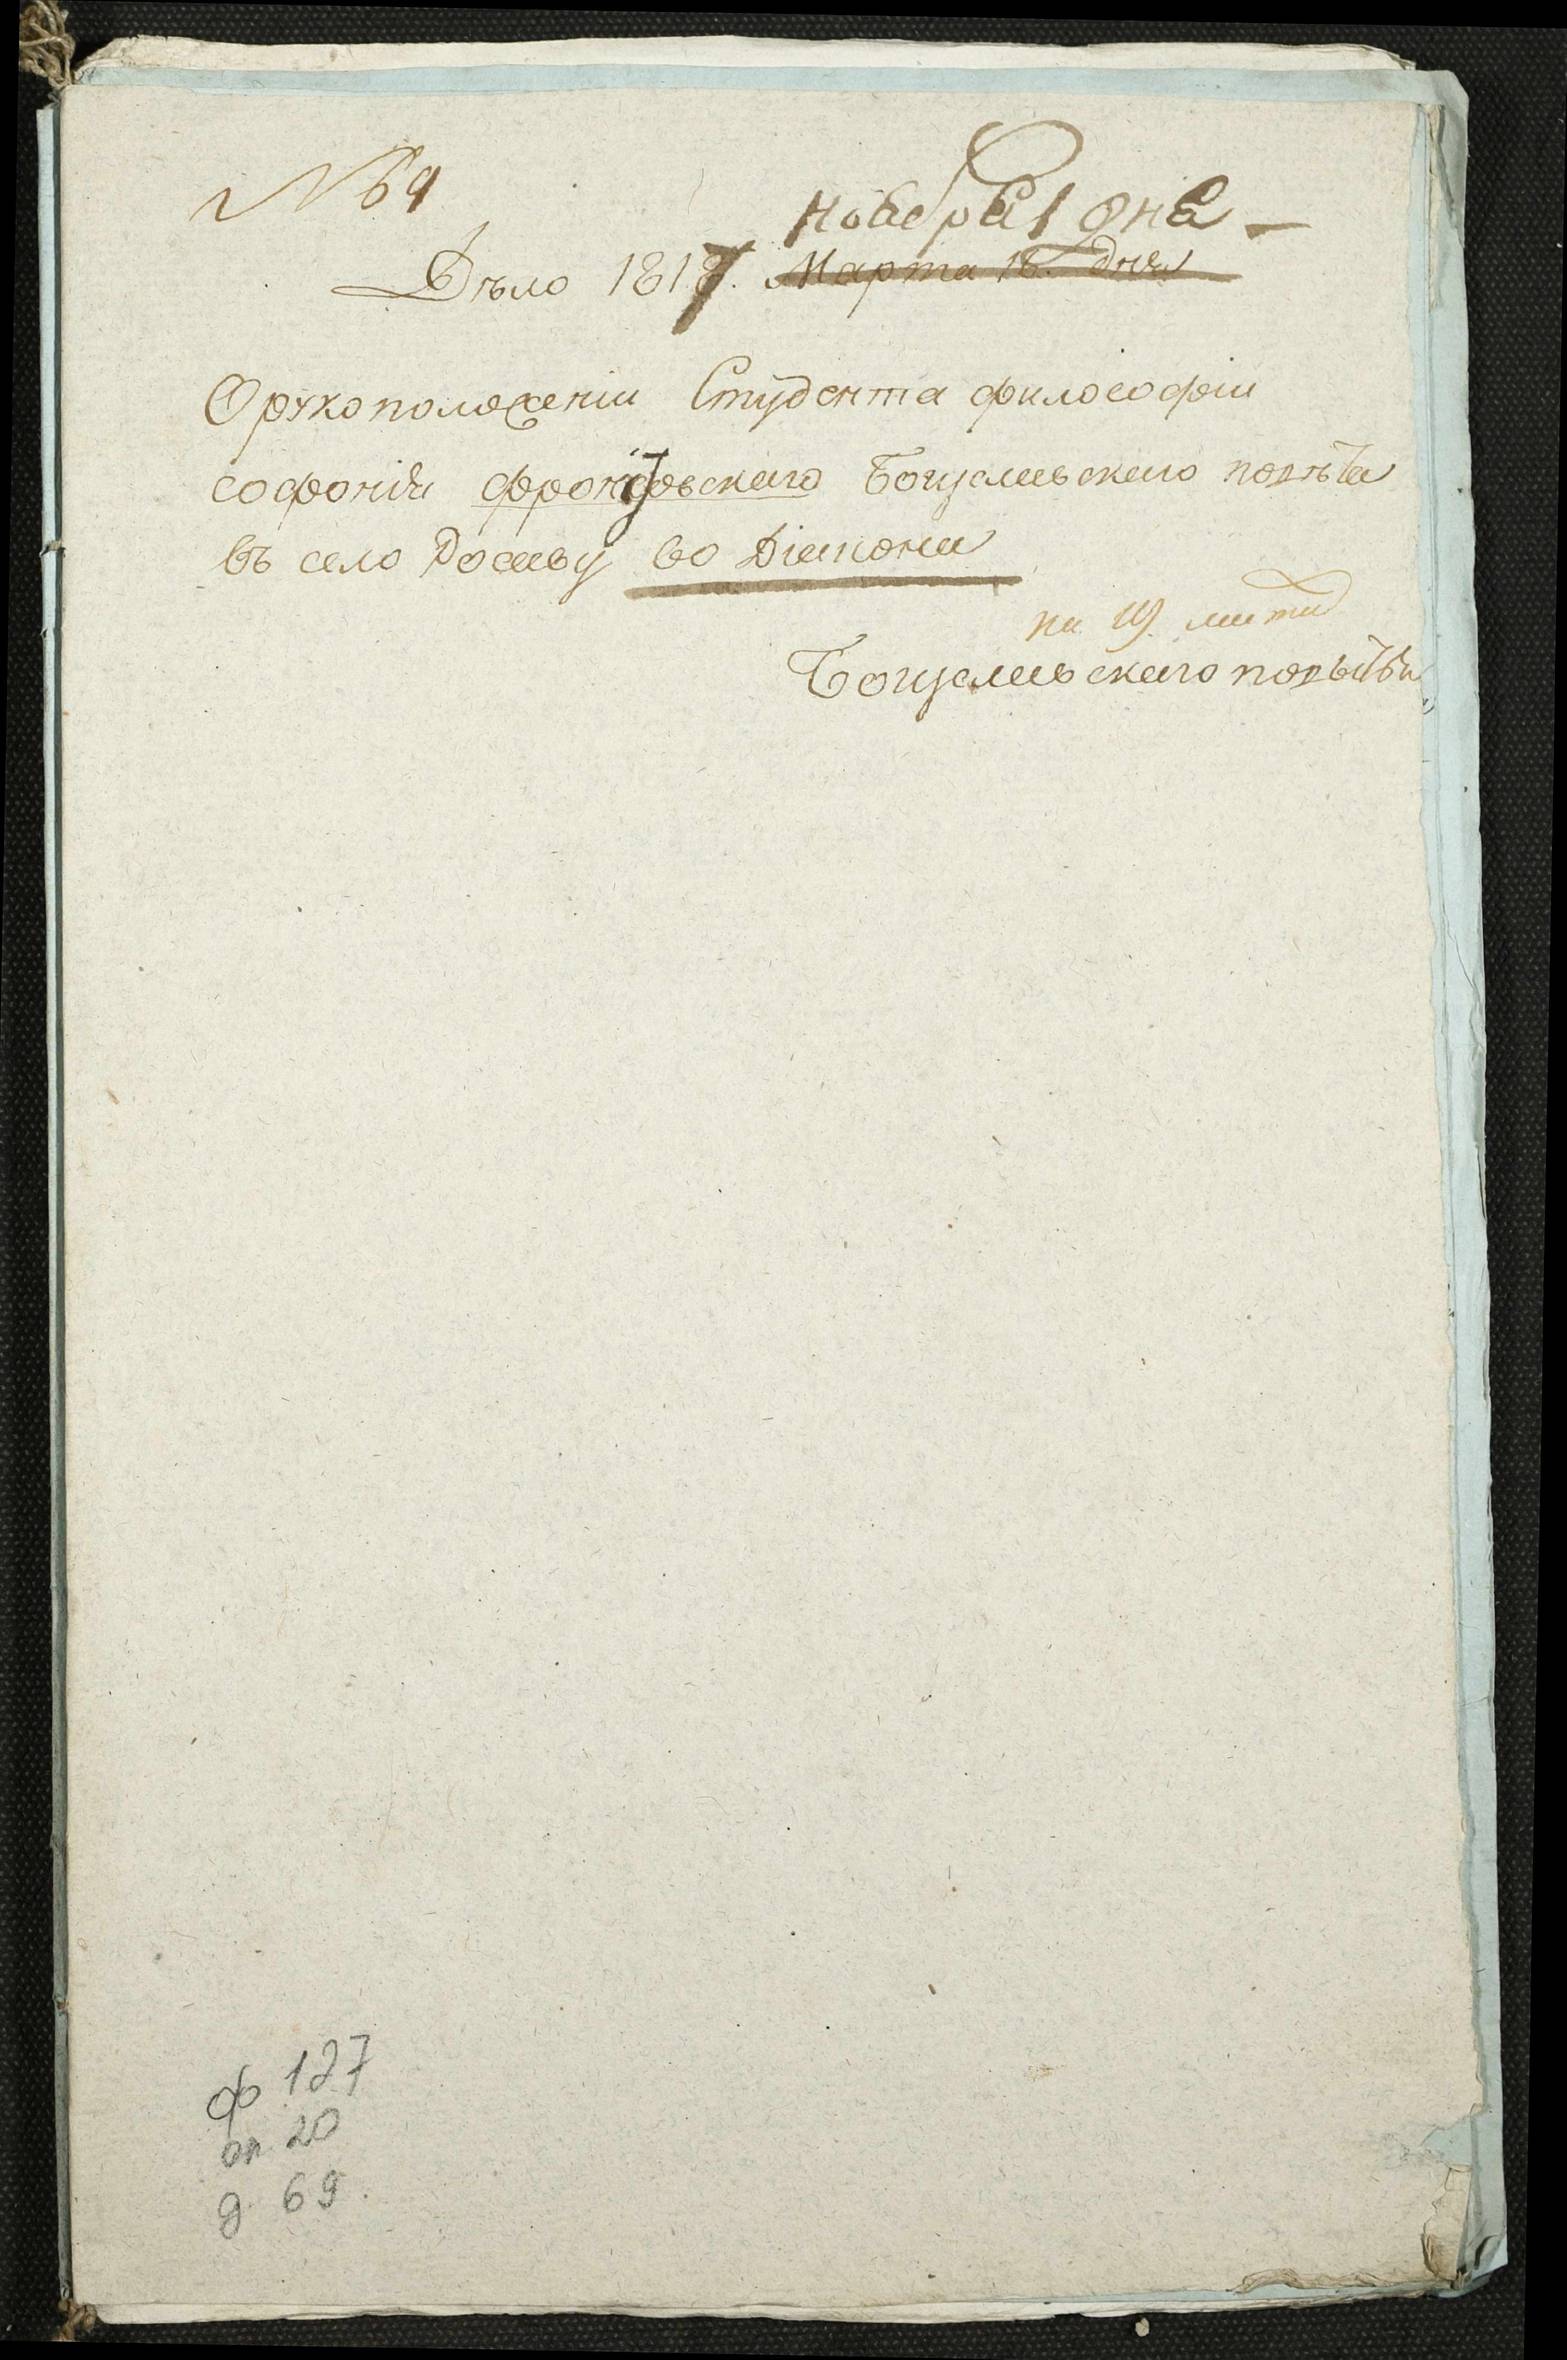 № 69
Ноября 1 дня
Дѣло 1817. Марта 18. дня
О рукоположеніи Студента философіи
Софоніи Богуславскаго повѣта
въ село Росаву во Діакона
на 19. листа
Богуславскаго повѣта
ф 127
оп 20
д 69.